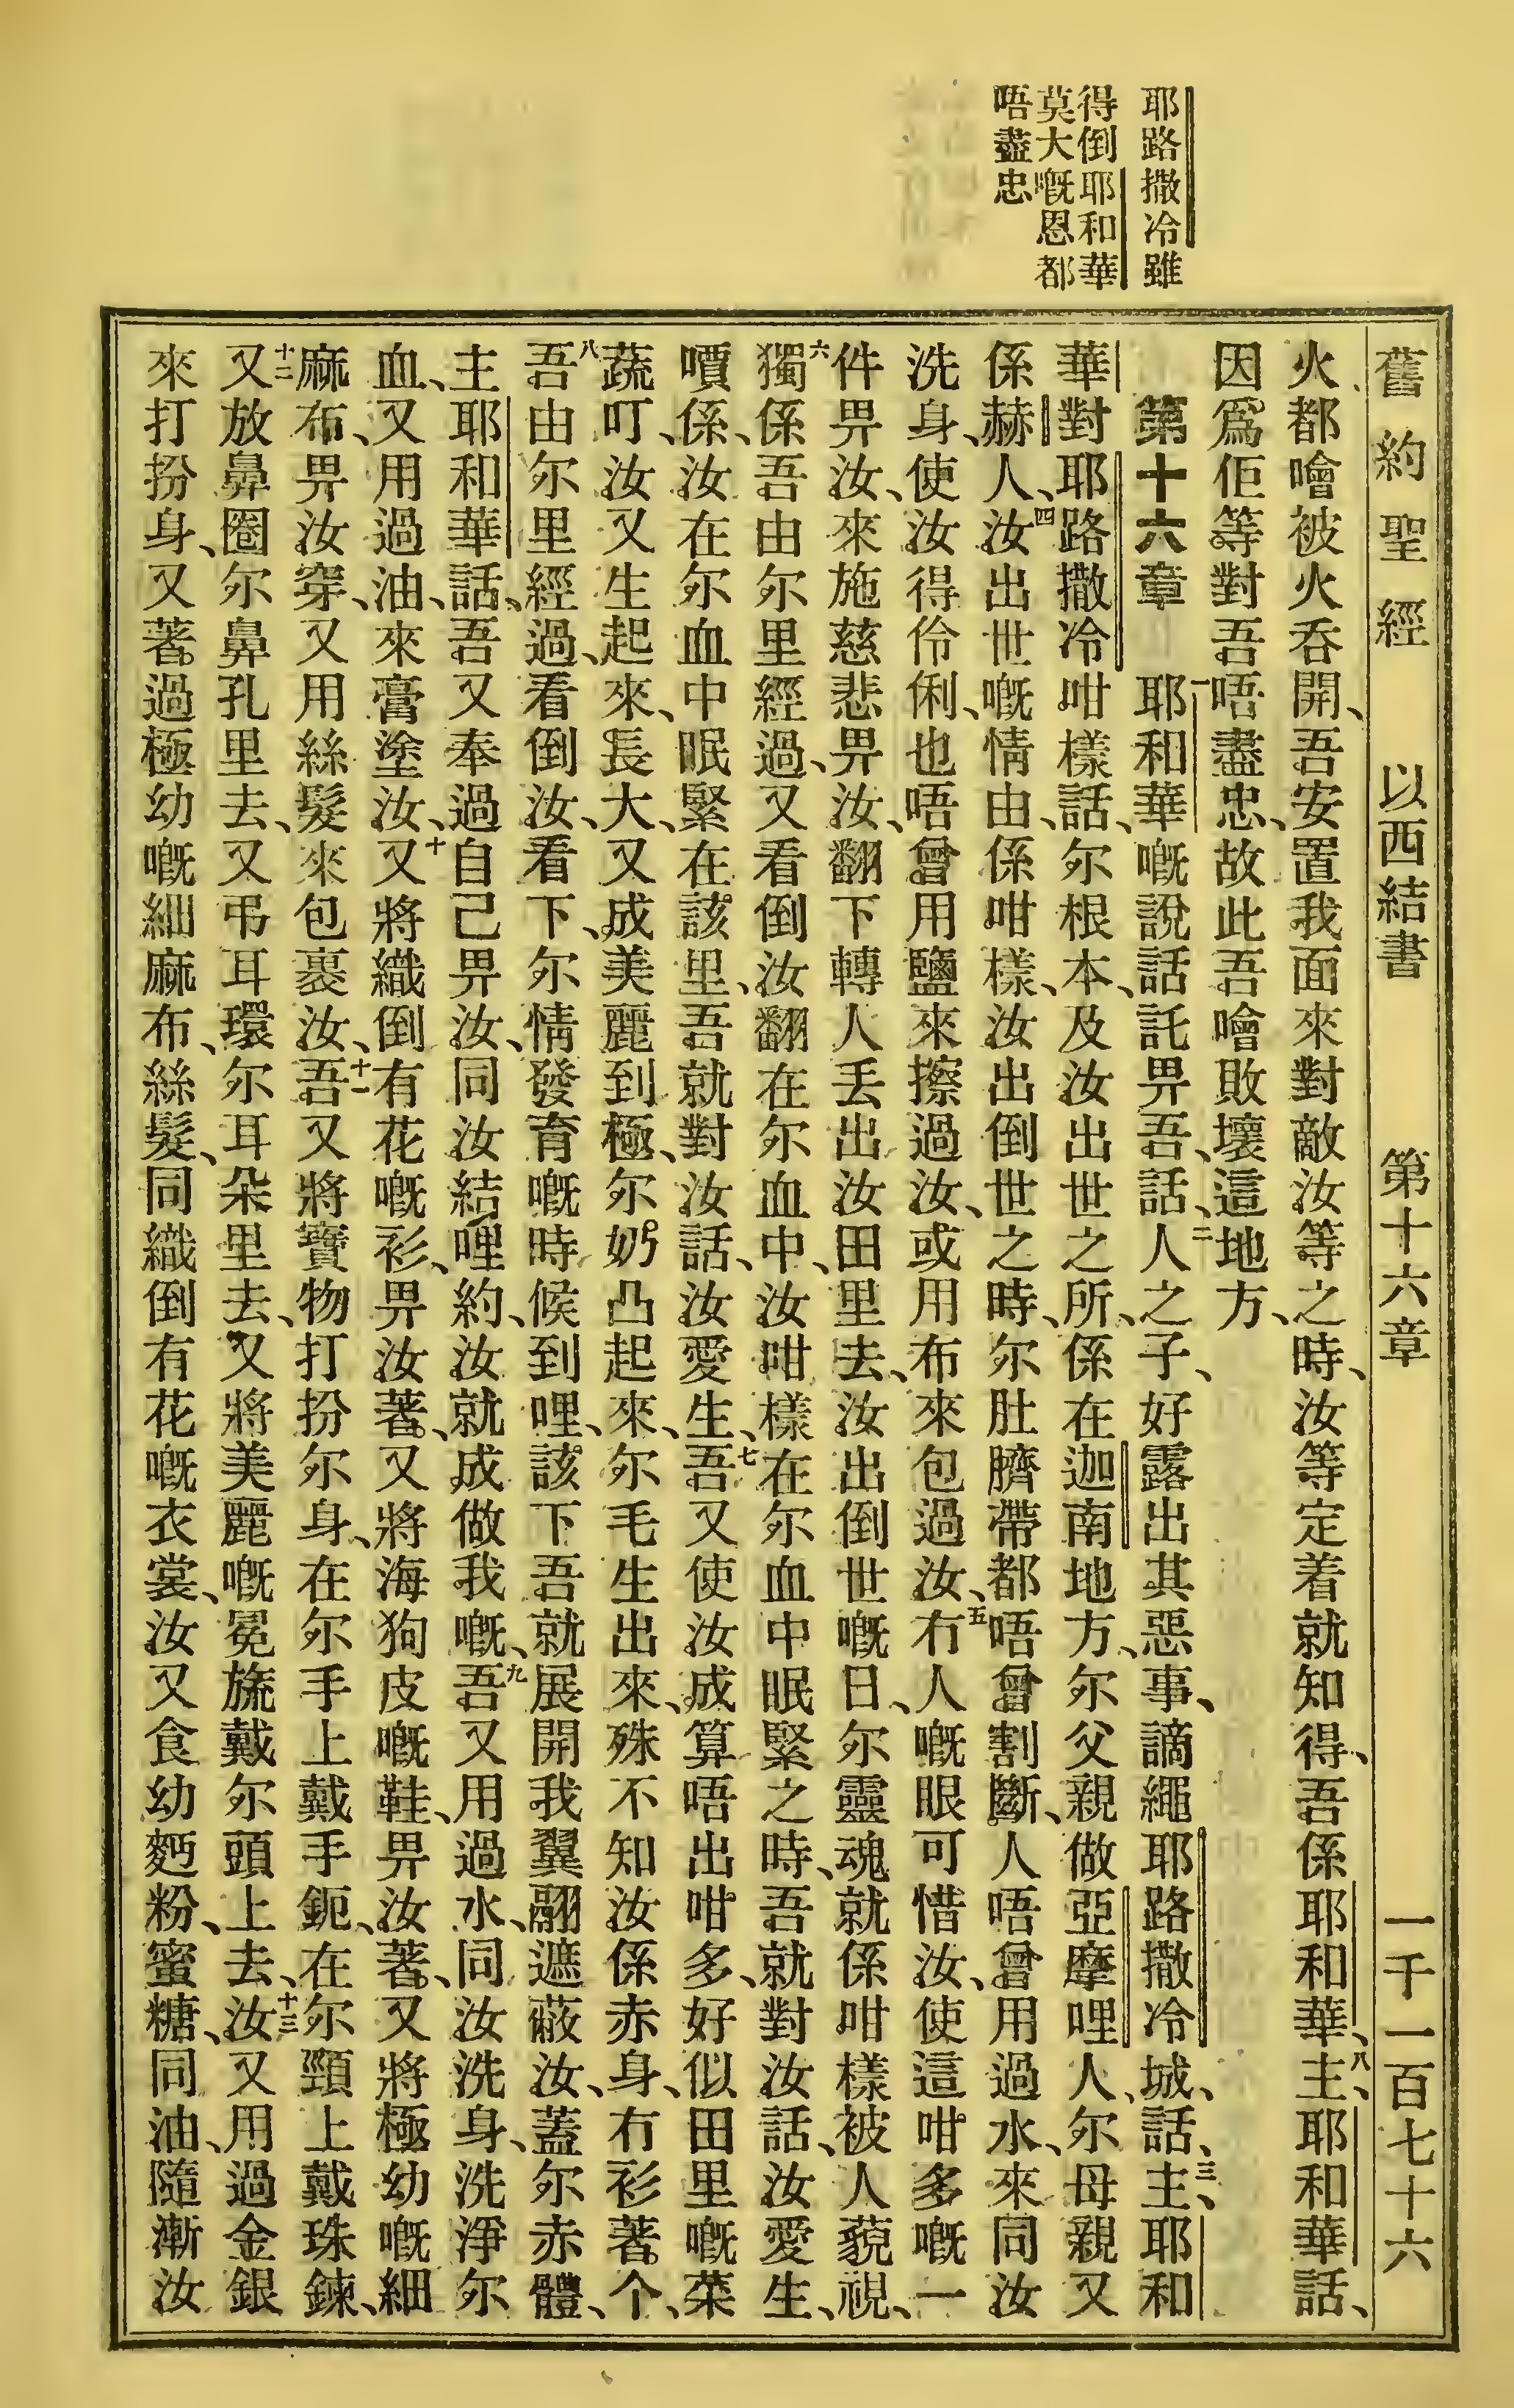 耶路撒冷雖
得倒耶和華
莫大嘅恩都
唔盡忠
舊約聖經 以西結書 第十六章 一千一百七十六
火、都噲被火呑開、吾安置我面來對敵汝等之時、汝等定着就知得、吾係耶和華、八主、耶和華話、
因爲佢等對吾唔盡忠、故此吾噲敗壞這地方、
第十六章 一耶和華嘅說話託畀吾、話、二人之子、好露出其惡事、謫繩耶路撒冷城、話、三主、耶和
華對耶路撒冷咁樣話、尔根本、及汝出世之所、係在迦南地方、尔父親做亞摩哩人、尔母親又
係赫人、四汝出世嘅情由、係咁樣、汝出倒世之時、尔肚臍帶都唔曾割斷、人唔曾用過水、來同汝
洗身、使汝得伶俐、也唔曾用鹽來擦過汝、或用布來包過汝、五冇人嘅眼可惜汝、使這咁多嘅一
件畀汝、來施慈悲畀汝、翻下轉人丢出汝田里去、汝出倒世嘅日、尔靈魂就係咁樣被人藐視、
六獨係吾由尔里經過、又看倒汝翻在尔血中、汝咁樣在尔血中眠緊之時、吾就對汝話、汝愛生、
嘳係、汝在尔血中眠緊在該里、吾就對汝話、汝愛生、七吾又使汝成算唔出咁多、好似田里嘅菜
蔬叮、汝又生起來、長大、又成美麗到極、尔奶凸起來、尔毛生出來、殊不知汝係赤身、冇衫著个、
八吾由尔里經過、看倒汝、看下、尔情發育嘅時候到哩、該下吾就展開我翼翮遮蔽汝、蓋尔赤體、
主耶和華話、吾又奉過自己畀汝、同汝結哩約、汝就成做我嘅、九吾又用過水、同汝洗身、洗淨尔
血、又用過油、來膏塗汝、十又將織倒有花嘅衫、畀汝著、又將海狗皮嘅鞋、畀汝著、又將極幼嘅細
麻布、畀汝穿、又用絲髮來包裹汝、十一吾又將寶物打扮尔身、在尔手上戴手鈪、在尔頸上戴珠鍊、
十二又放鼻圈尔鼻孔里去、又弔耳環尔耳朵里去、又將美麗嘅冕旒戴尔頭上去、十三汝又用過金銀
來打扮身、又著過極幼嘅細麻布、絲髮、同織倒有花嘅衣裳、汝又食幼麪粉、蜜糖、同油、隨漸汝